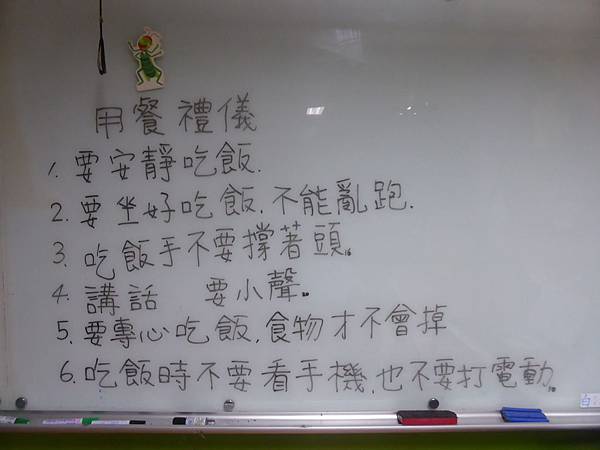 用餐禮儀
1. 要安靜吃飯.
2. 要坐好吃飯.不能亂跑.
3. 吃飯手不要撐著頭。
4. 講話 要小聲。
5. 要專心吃飯.食物才不會掉
6. 吃飯時不要看手機.也不要打電動。
白